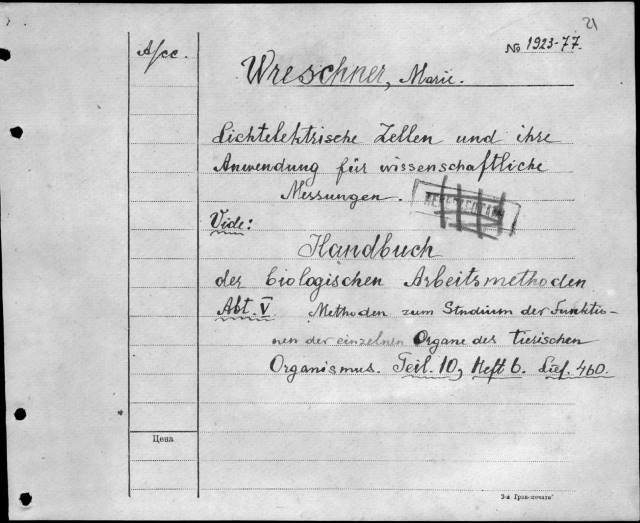 21
Acc.
№ 1923-77.
Wreschner, Marie.
Lichtelektrische Zellen und ihre
Anwendung für wissenschaftliche
Messungen.
Vide:
Handbuch
der biologischen Arbeitsmethoden
Abt. V. Methoden zum Studium der Funktio-
nen der einzelnen Organe des tierischen
Organismus. Teil. 10, Heft 6. Lief. 460.
Цена
3-я Грав-печатг